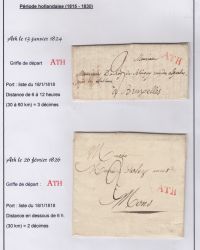 Période hollandaise (1815 - 1830)
Ath le 13 janvier 1824
Griffe de départ : ATH
Port : liste du 18/1/1818
Distance de 6 à 12 heures
(30 à 60 km) = 3 décimes
Monsieur
ATH
Monsieur
à Bruxelles
Ath le 26 février 1826
Griffe de départ : ATH
Port : liste du 18/1/1818
Distance en dessous de 6 h.
(30 km) = 2 décimes
ATH
Mons